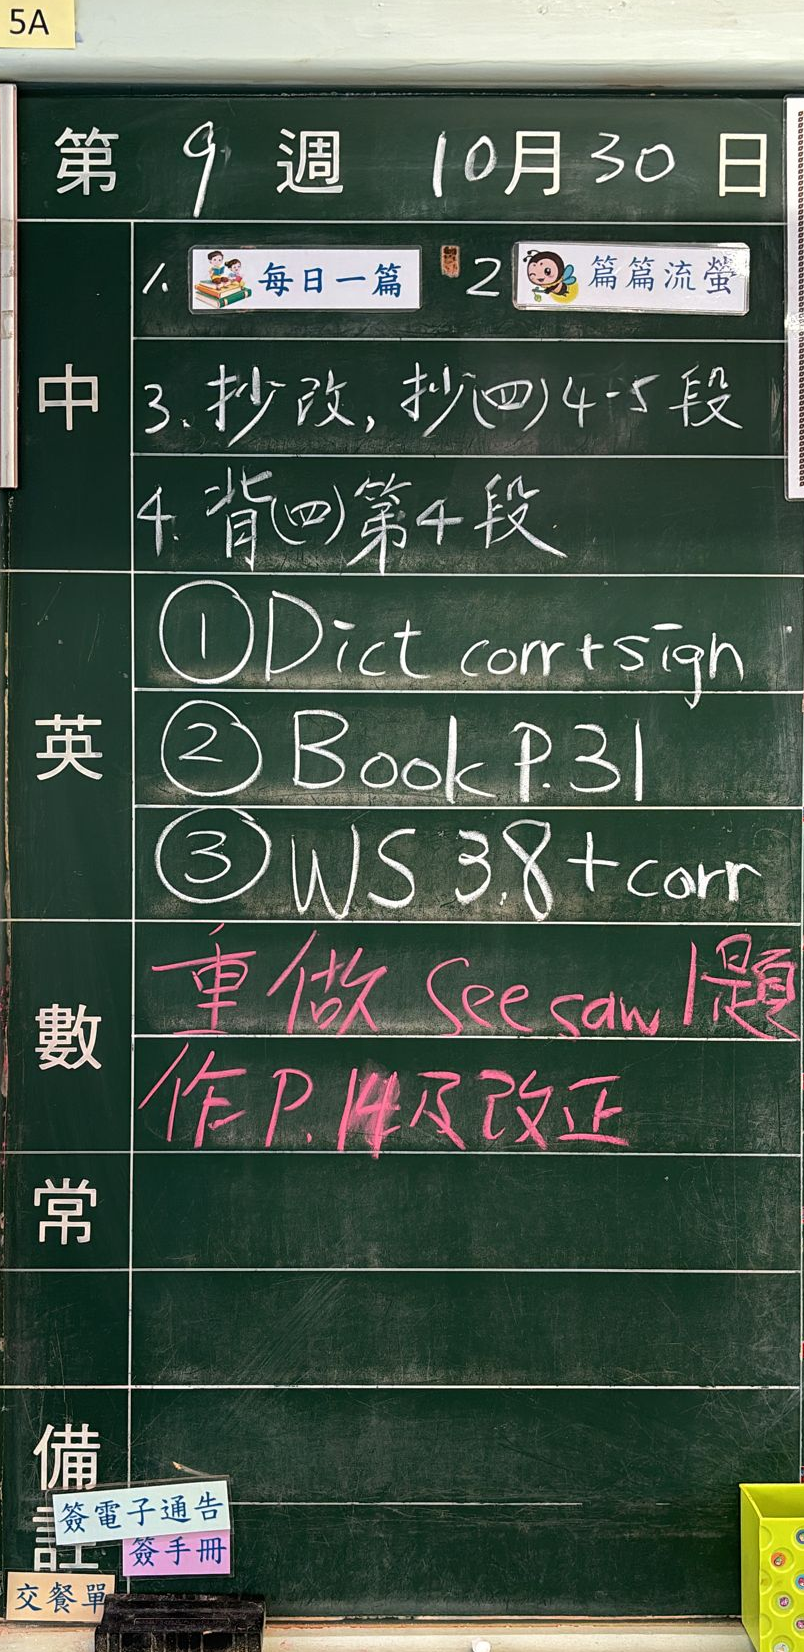 5A
第 9 週 10月30日
中
1. 每日一篇 2 篇篇流螢
3. 抄改, 抄(四)4-5段
4. 背(四)第4段
英
① Dict corr+sign
② Book P.31
③ WS 3.8+corr
數
重做 Seesaw 1題
作P.14及改正
常
備註
簽電子通告
簽手冊
交餐單